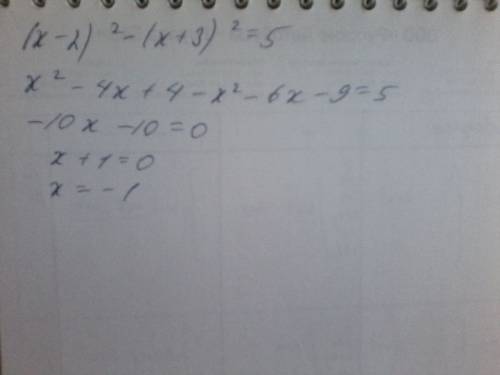 (x-2)² - (x+3)² = 5
x² - 4x + 4 - x² - 6x - 9 = 5
-10x - 10 = 0
x + 1 = 0
x = -1